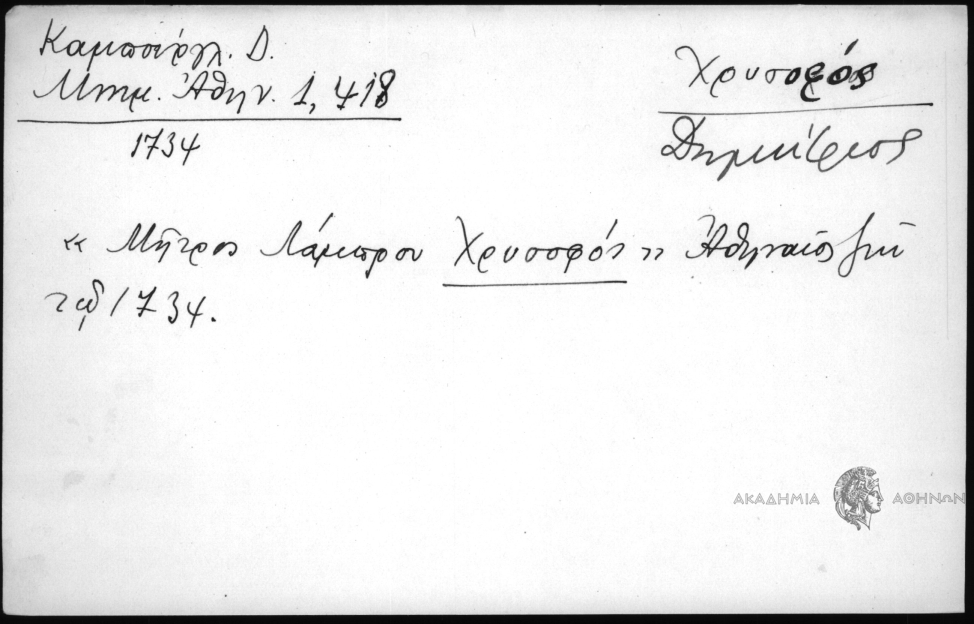 Καμπούργλ. Δ.
Μνημ. Ἀθην. 1, 418
1734
Χρυσοφός
Δημήτριος
« Μῆτρος Λάμπρου Χρυσοφός » Ἀθηναῖος
τῷ 1734.
ΑΚΑΔΗΜΙΑ ΑΘΗΝΩΝ